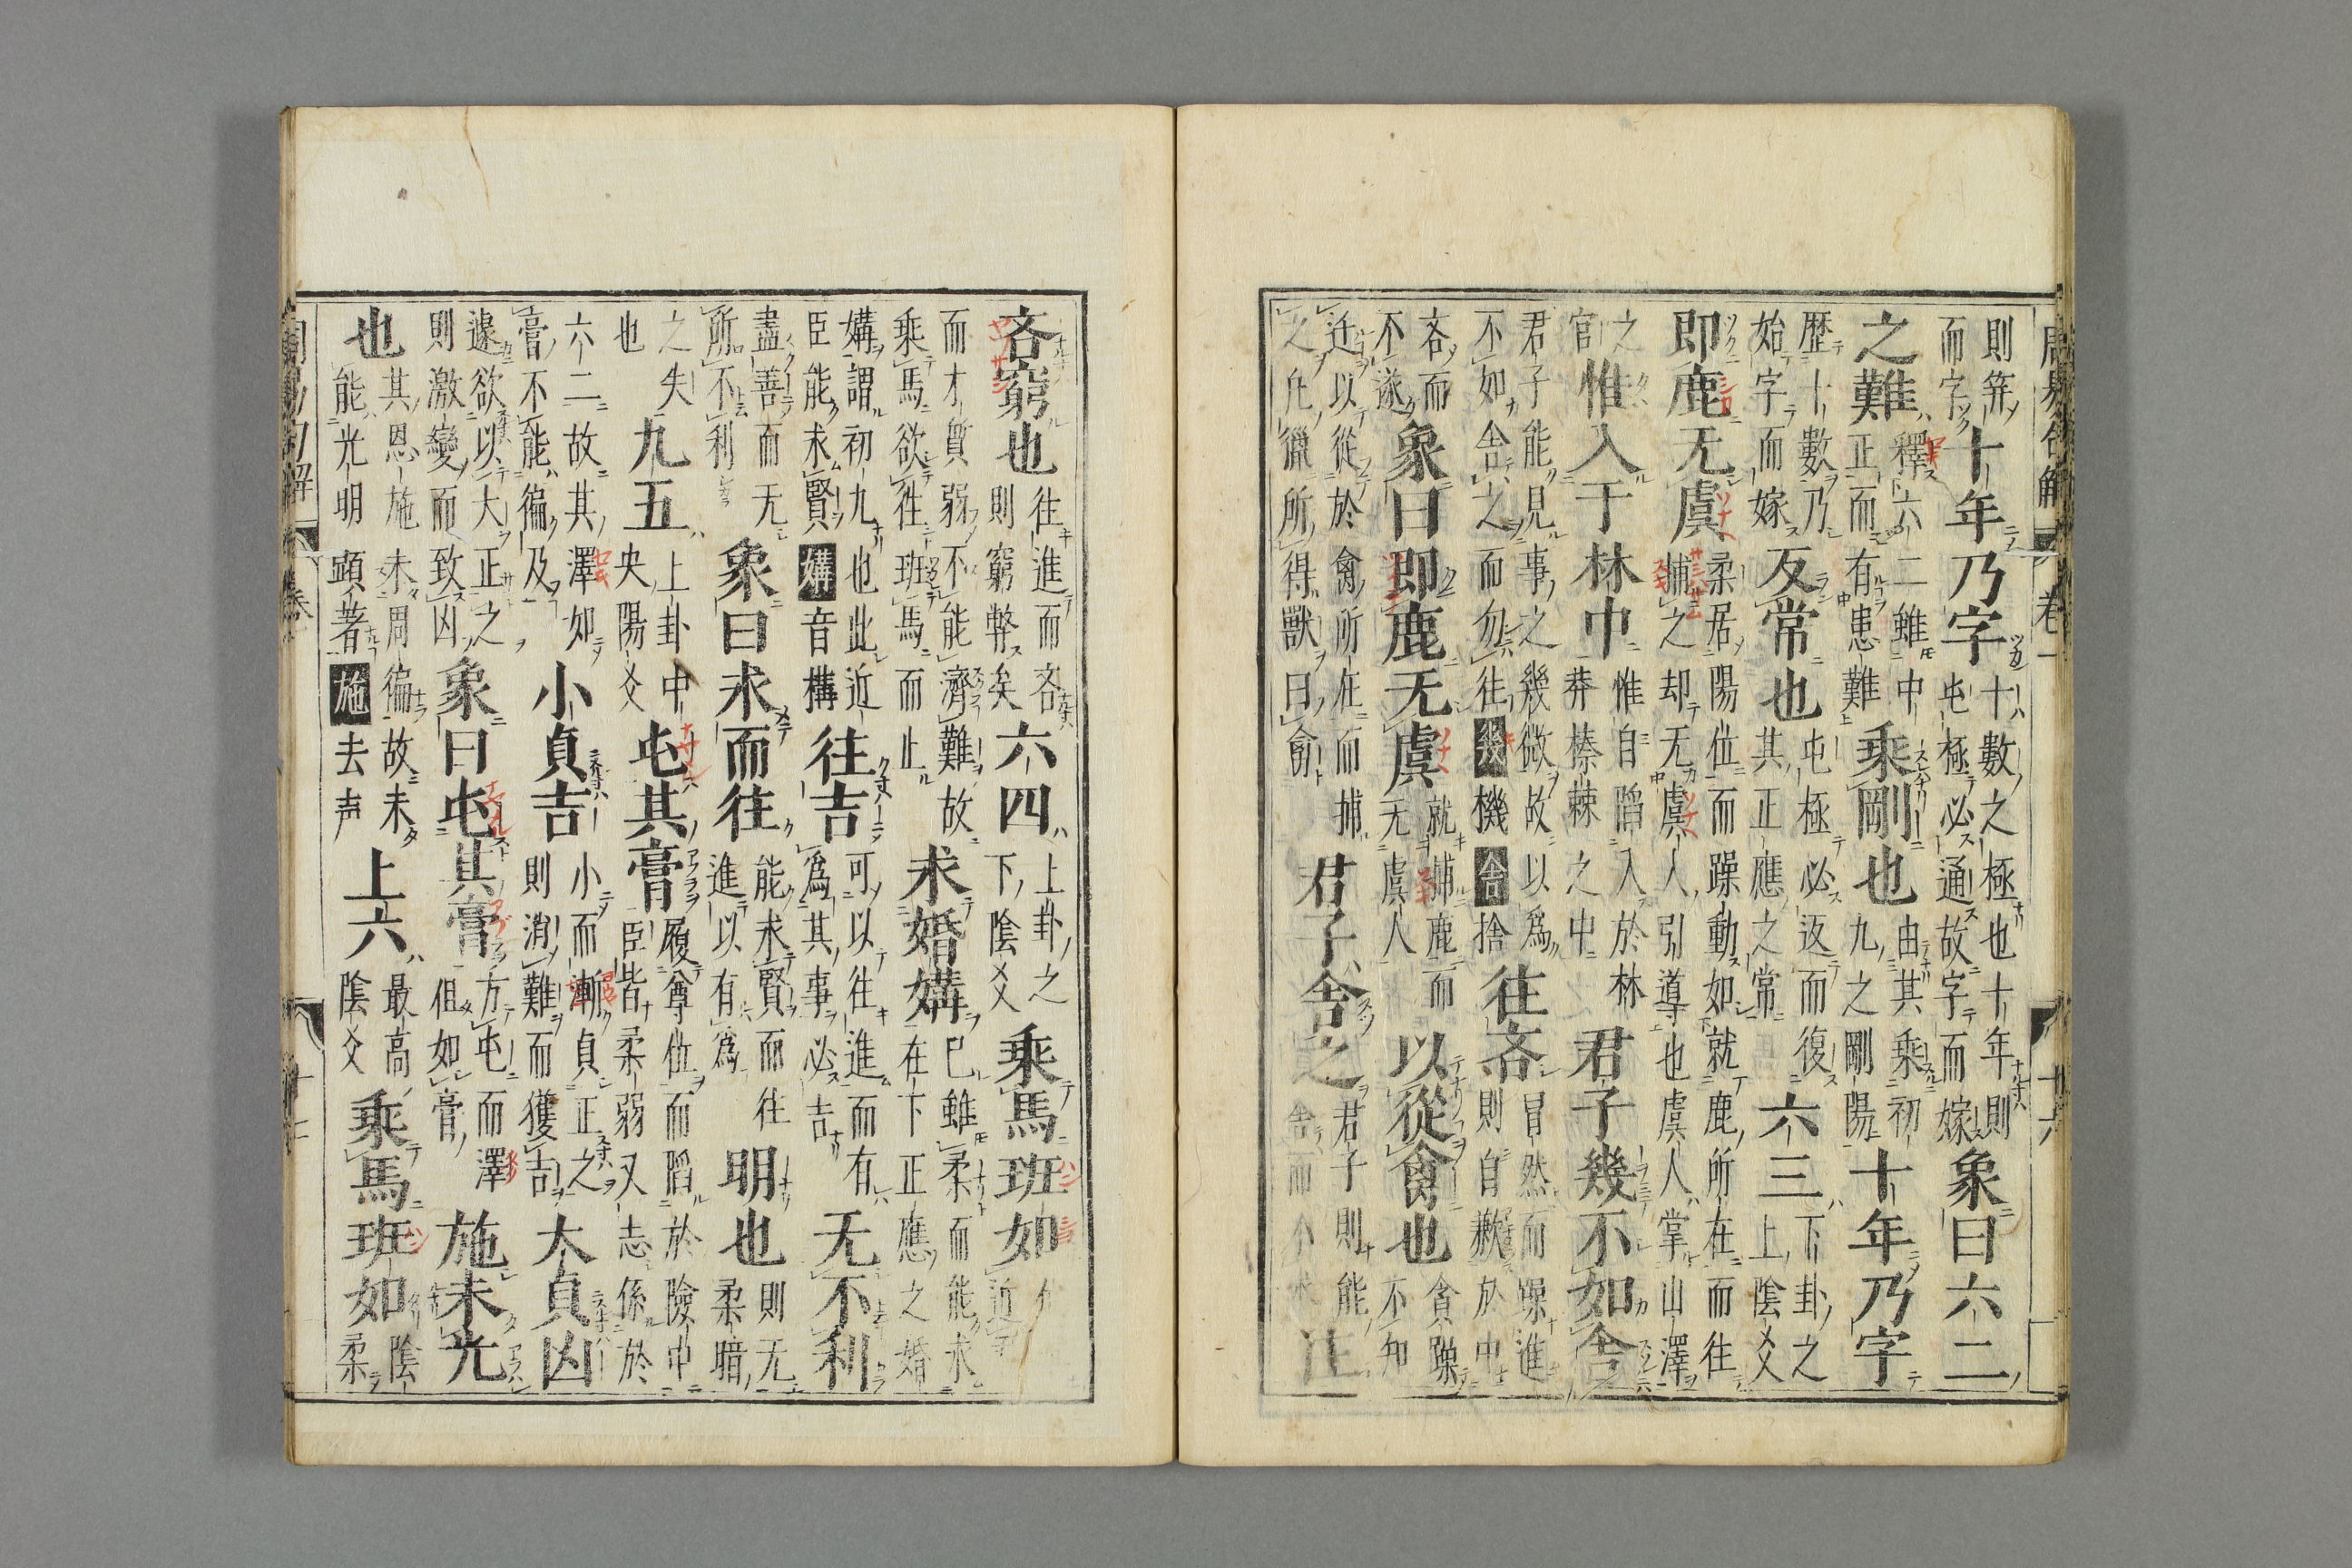 周易句解 卷一 十六
則筭十年乃字十數之極也十年則
而字十年乃字屯極必通故字而嫁象曰六二
之難釋六二雖中正而有患難乘剛也由其乘初九之剛陽十年乃字
歷十數乃始字而嫁反常也屯極必返而復其正應之常六三下卦之上陰爻
即鹿无虞柔居陽位而躁動如就鹿所在而往捕之却无虞人引導也虞人掌山澤
之官惟入于林中惟自陷入於林莽榛棘之中君子幾不如舍
君子能見事之幾微故以爲不如舍之而勿往幾機舍捨往吝冒然而躁進則自歉於中
吝而不遂象曰即鹿无虞就捕鹿而无虞人以從禽也貪躁不知
迂以從於禽所在而捕之凡獵所得獸曰禽君子舍之君子則能舍而不往
吝窮也往進而吝則窮弊矣六四上卦之下陰爻乘馬班如
而才質弱不能濟難故乘馬欲往班馬而止求婚媾已雖柔而能求在下正應之婚
媾謂初九也此近臣能求賢媾音構往吉可以往進而有爲其事必吉无不利
盡善而无所不利象曰求而往能求賢而往進以有爲明也則无柔暗
之失也九五上卦中央陽爻屯其膏履尊位而陷於險中臣皆柔弱又志係於
六二故其澤如膏不能徧及小貞吉小而漸貞正之則消難而獲吉大貞凶
遽欲以大正之則激變而致凶象曰屯其膏方屯而澤但如膏施未光
也其恩施未周徧故未能光明顯著施去声上六最高陰爻乘馬班如陰柔
周易句解 卷一 十七